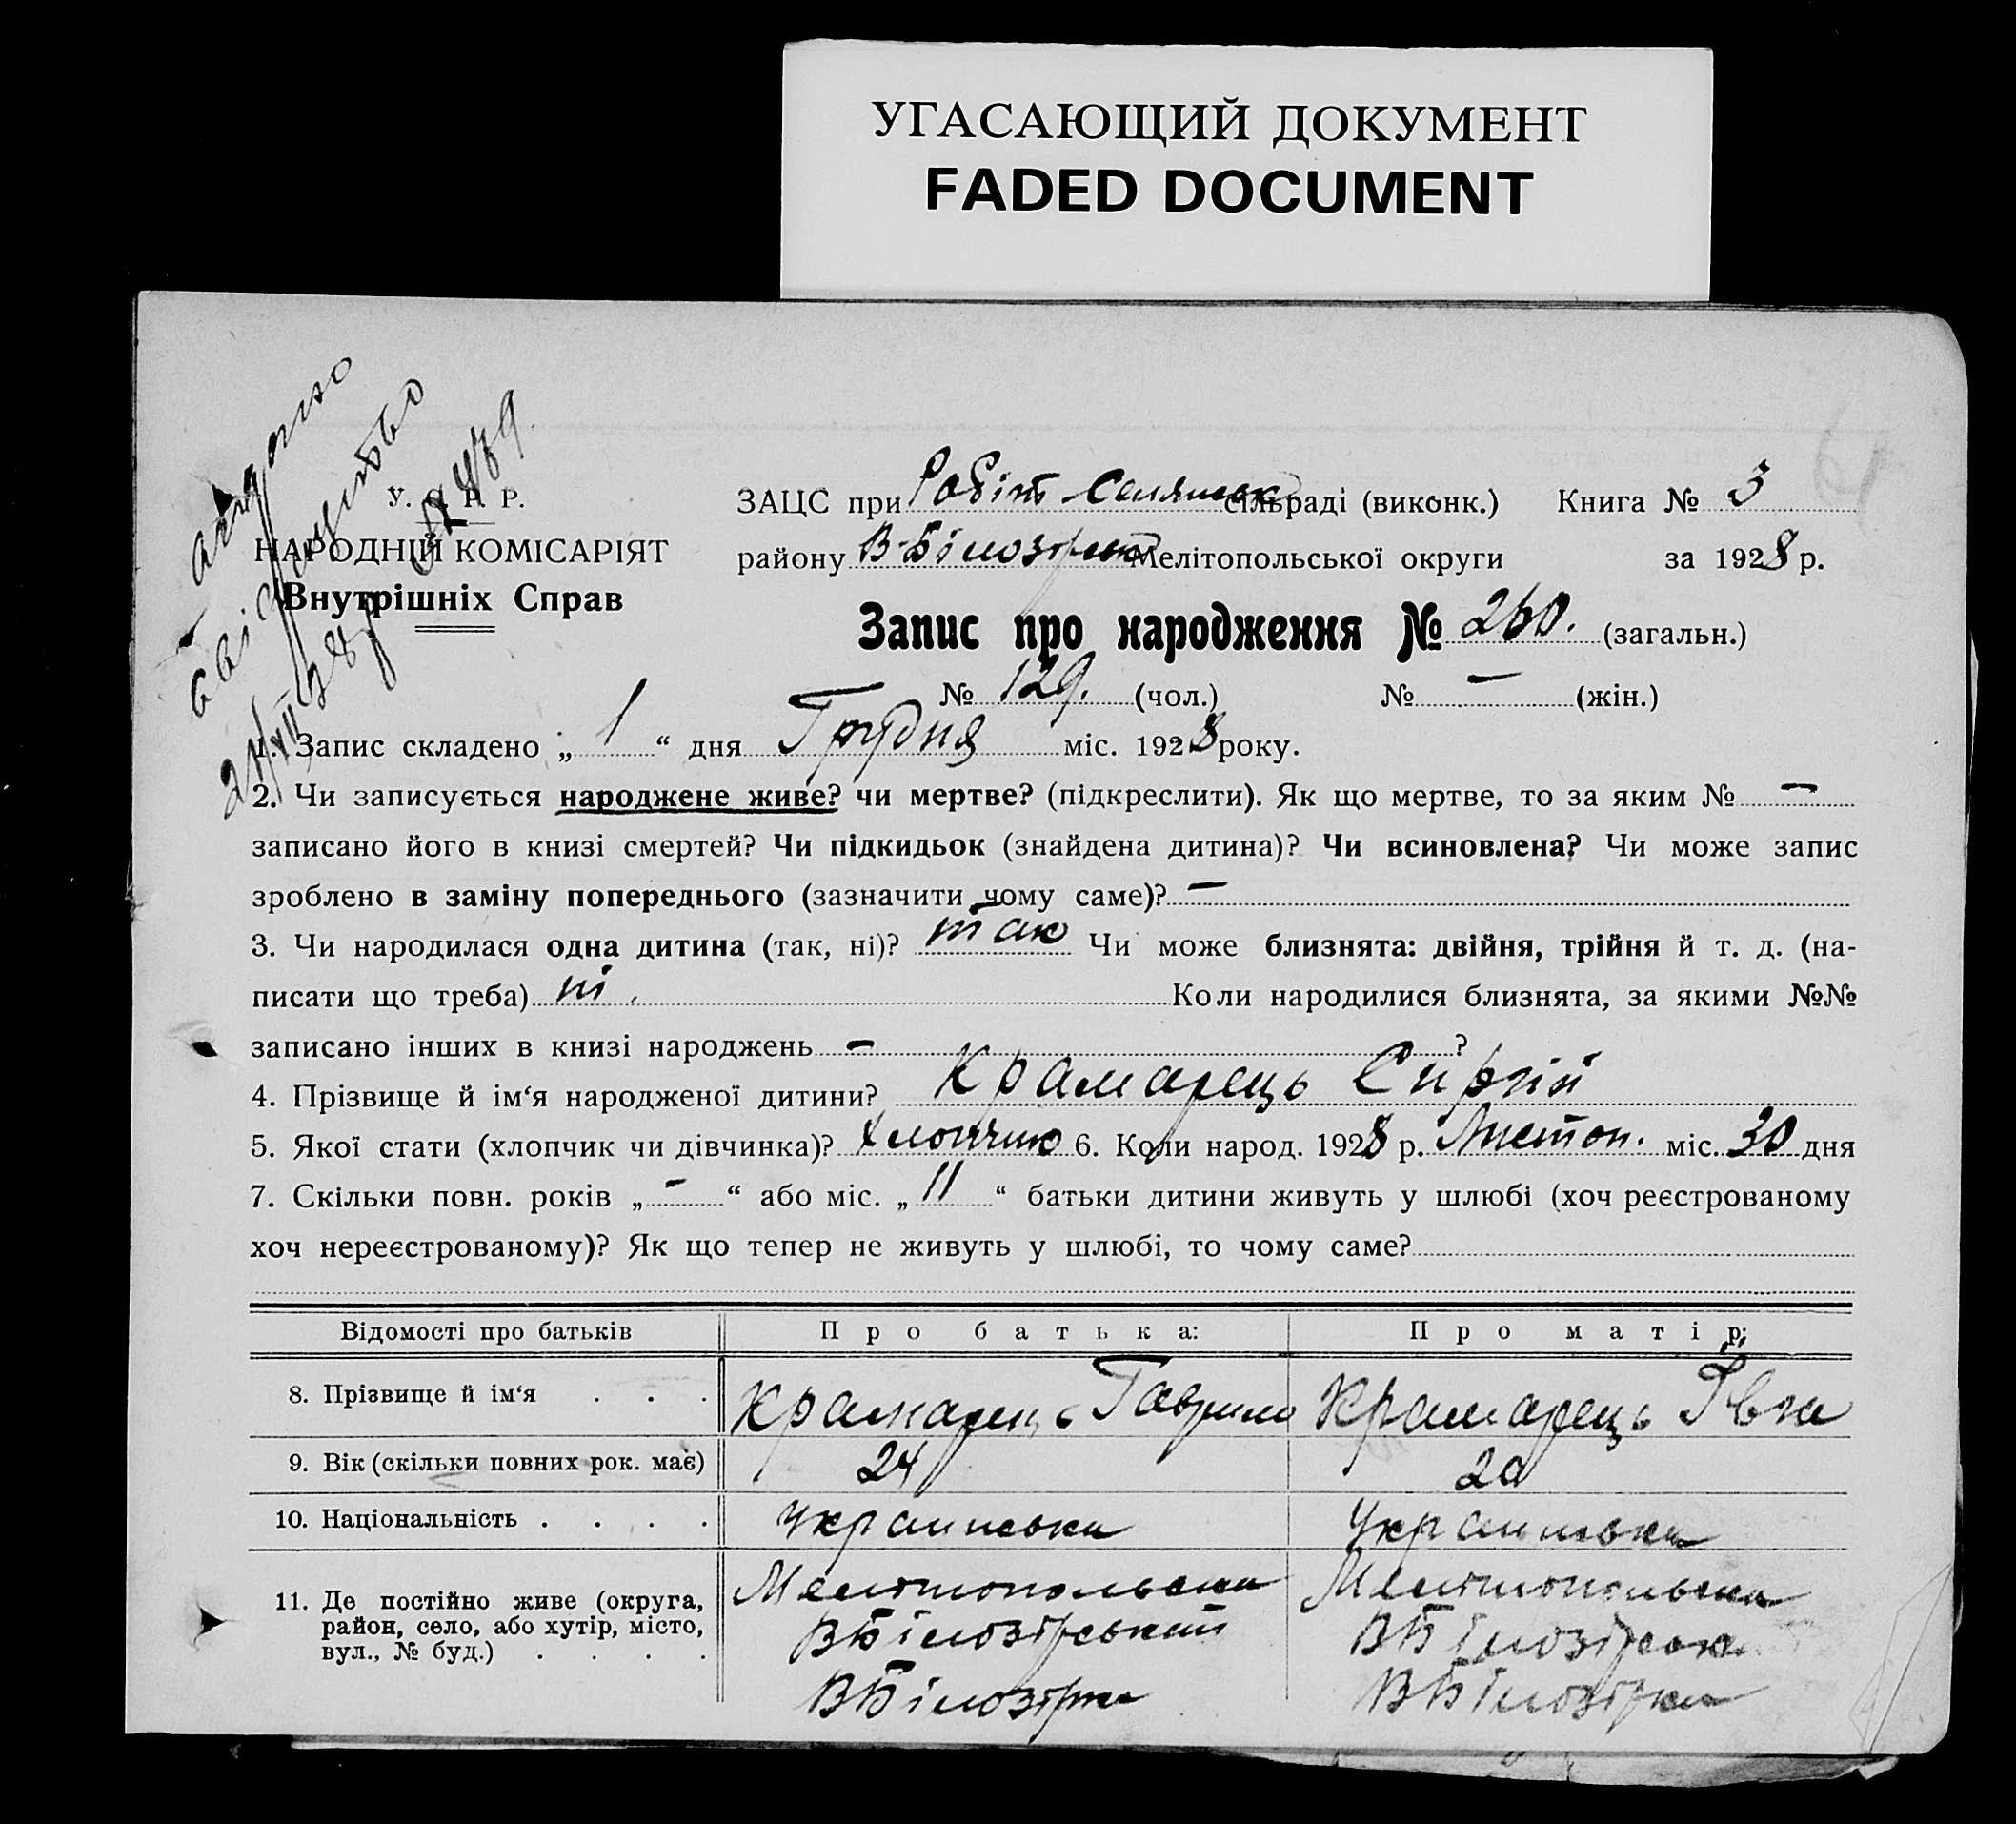 УГАСАЮЩИЙ ДОКУМЕНТ
FADED DOCUMENT
У. С. Р. Р.
НАРОДНІЙ КОМІСАРІЯТ
Внутрішніх Справ
ЗАЦС при Робітн Селянськ сільраді (виконк.) Книга № 3
району В-Білозірськ Мелітопольської округи за 1928 р.
Запис про народження № 260. (загальн.)
№ 129. (чол.) № — (жін.)
1. Запис складено „ 1 “ дня Грудня міс. 1928 року.
2. Чи записується народжене живе? чи мертве? (підкреслити). Як що мертве, то за яким № —
записано його в книзі смертей? Чи підкидьок (знайдена дитина)? Чи всиновлена? Чи може запис
зроблено в заміну попереднього (зазначити чому саме)? —
3. Чи народилася одна дитина (так, ні)? так Чи може близнята: двійня, трійня й т. д. (на-
писати що треба) ні. Коли народилися близнята, за якими №№
записано інших в книзі народжень — ?
4. Прізвище й ім‘я народженої дитини? Крамарець Сиргій
5. Якої стати (хлопчик чи дівчинка)? Хлопчик 6. Коли народ. 1928 р. Листоп. міс. 30 дня
7. Скільки повн. років „ - “ або міс. „ 11 “ батьки дитини живуть у шлюбі (хоч реєстрованому
хоч нереєстрованому)? Як що тепер не живуть у шлюбі, то чому саме?
Відомості про батьків Про батька: Про матір:
8. Прізвище й ім‘я . . . Крамарець Гаврило Крамарець Івга
9. Вік (скільки повних рок. має) 24 20
10. Національність . . . . Українська Українська
11. Де постійно живе (округа, район, село, або хутір, місто, вул., № буд.) . . . .
Мелітопольська Мелітопольська
ВБілозірський ВБілозірськ
ВБілозірка ВБілозірка